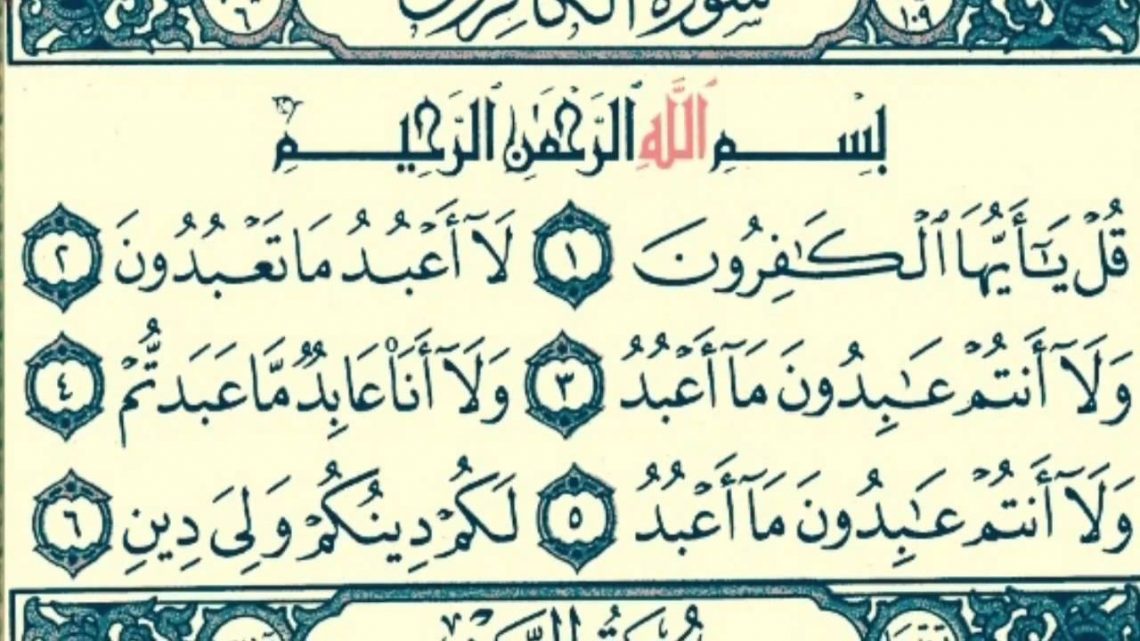 سورة الكافرون ١٠٩ ٦
بِسْمِ اللَّهِ الرَّحْمَٰنِ الرَّحِيمِ
قُلْ يَٰٓأَيُّهَا ٱلْكَٰفِرُونَ ١ لَآ أَعْبُدُ مَا تَعْبُدُونَ ٢
وَلَآ أَنتُمْ عَٰبِدُونَ مَآ أَعْبُدُ ٣ وَلَآ أَنَا۠ عَابِدٌ مَّا عَبَدتُّمْ ٤
وَلَآ أَنتُمْ عَٰبِدُونَ مَآ أَعْبُدُ ٥ لَكُمْ دِينُكُمْ وَلِىَ دِينِ ٦